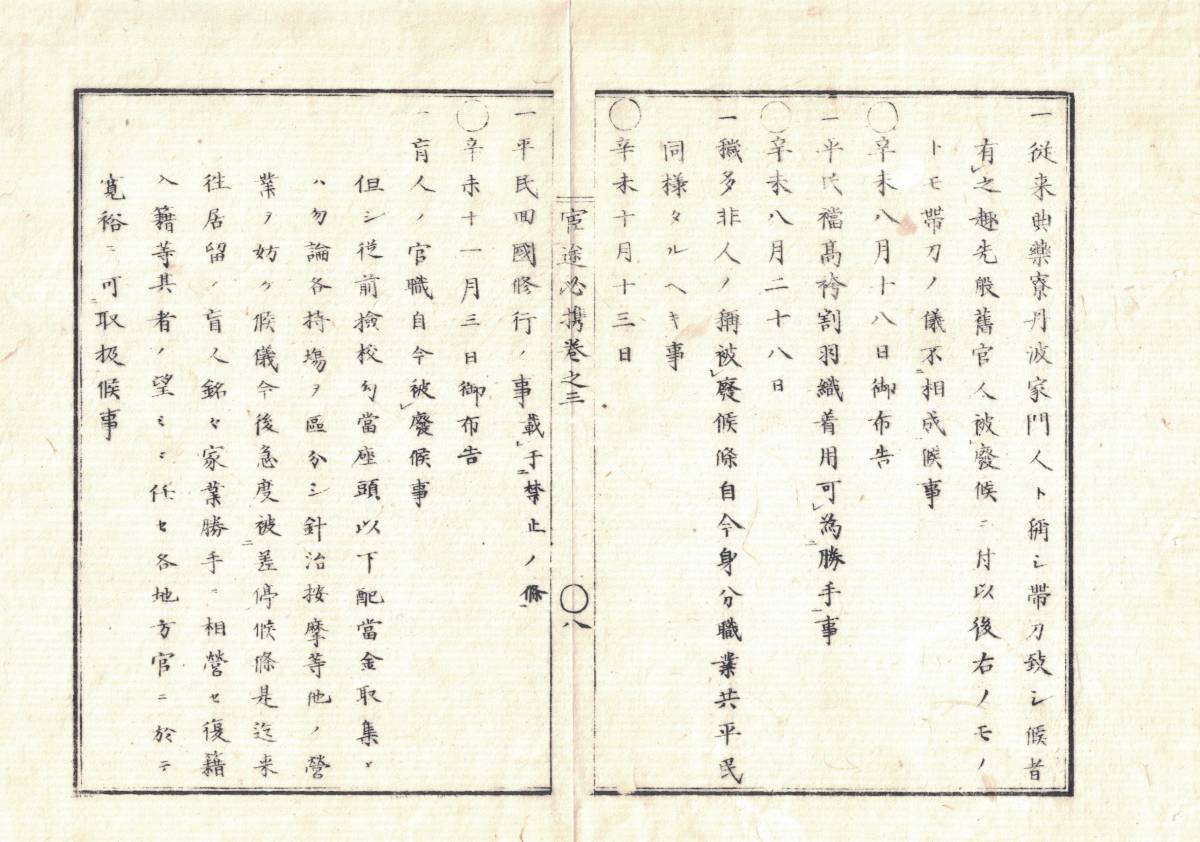 一從来典藥寮丹波家門人ト稱シ帶刀致シ候者
有レ之趣先般舊官人被レ廢候ニ付以後右ノモノ
トモ帶刀ノ儀不二相成一候事
○辛未八月十八日御布告
一平民襠高袴割羽織着用可レ為二勝手一事
○辛未八月二十八日
一穢多非人ノ稱被レ廢候條自今身分職業共平民
同様タルヘキ事
○辛未十月十三日
官途必携巻之三
○八
一平民回國修行ノ事載二于禁止ノ條一
○辛未十一月三日御布告
一盲人ノ官職自今被レ廢候事
但シ従前撿校勾當座頭以下配當金取集メ
ハ勿論各持塲ヲ區分シ針治按摩等他ノ營
業ヲ妨ケ候儀今後急度被二差停一候條是迄来
徃居留ノ盲人銘々家業勝手ニ相營セ復籍
入籍等其者ノ望ミニ任セ各地方官ニ於テ
寛裕ニ可二取扱一候事